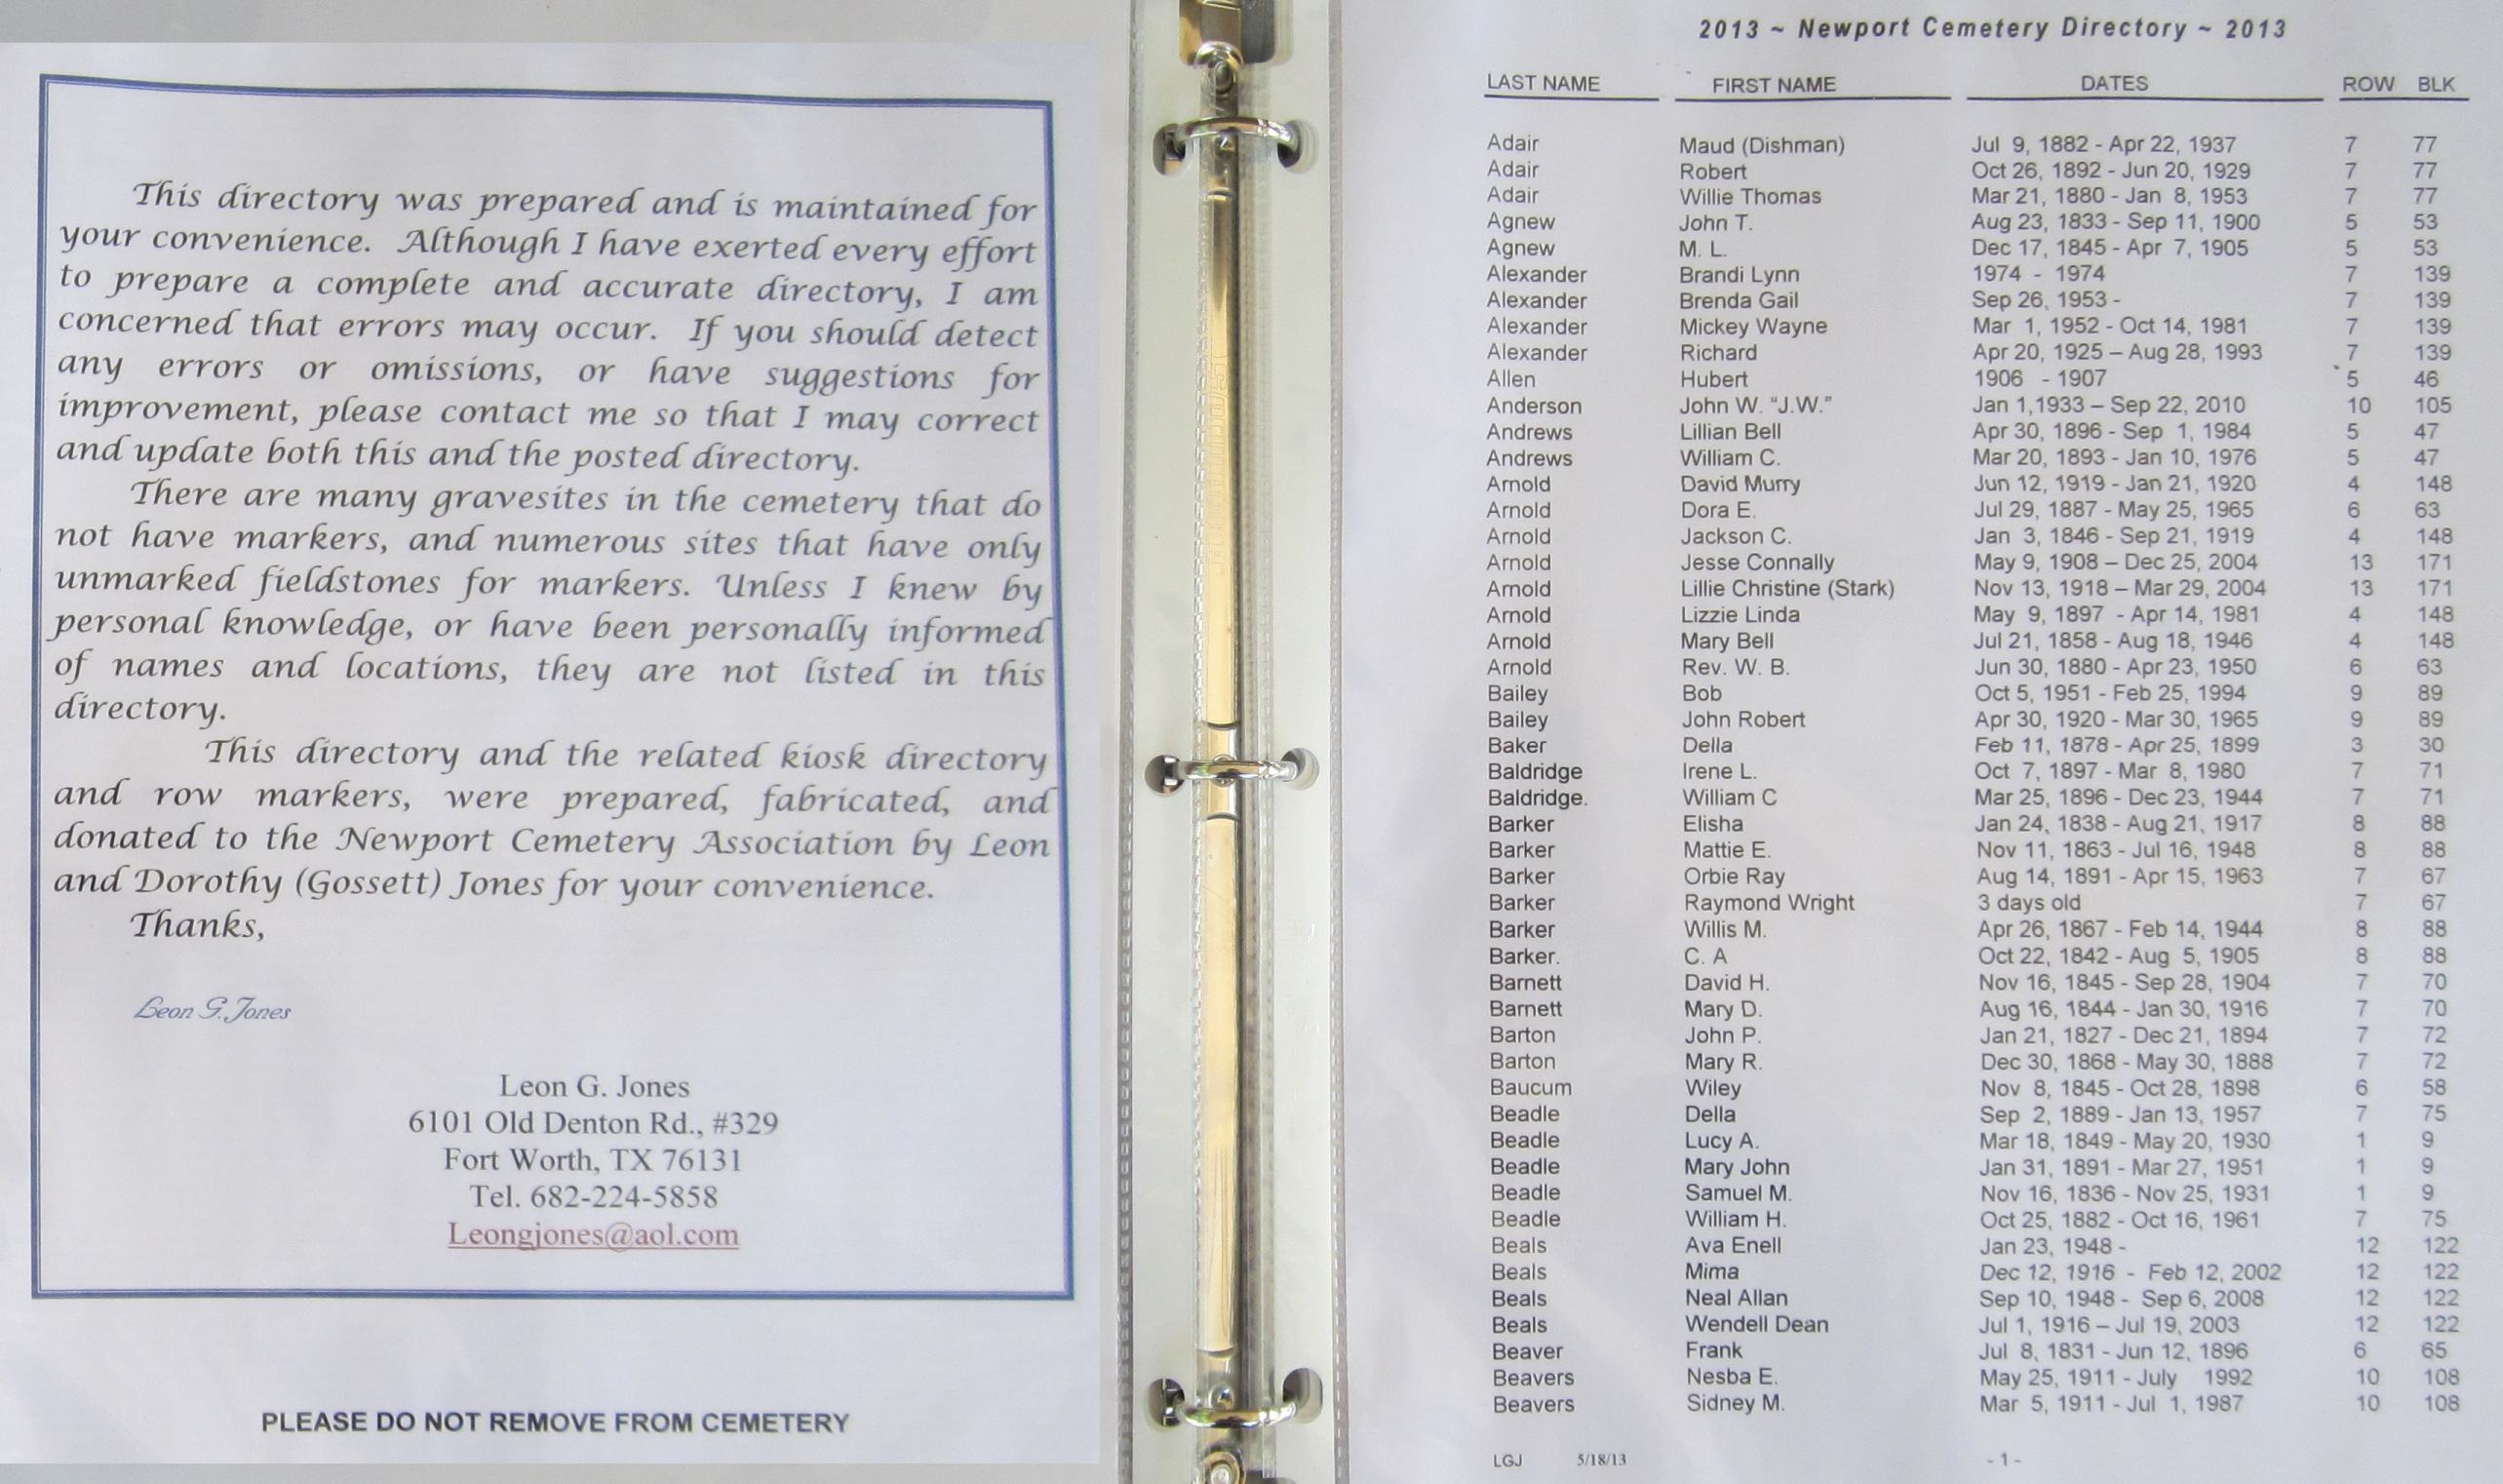 This directory was prepared and is maintained for
your convenience. Although I have exerted every effort
to prepare a complete and accurate directory, I am
concerned that errors may occur. If you should detect
any errors or omissions, or have suggestions for
improvement, please contact me so that I may correct
and update both this and the posted directory.
There are many gravesites in the cemetery that do
not have markers, and numerous sites that have only
unmarked fieldstones for markers. Unless I knew by
personal knowledge, or have been personally informed
of names and locations, they are not listed in this
directory.
This directory and the related kiosk directory
and row markers, were prepared, fabricated, and
donated to the Newport Cemetery Association by Leon
and Dorothy (Gossett) Jones for your convenience.
Thanks,
Leon G. Jones
Leon G. Jones
6101 Old Denton Rd., #329
Fort Worth, TX 76131
Tel. 682-224-5858
Leongjones@aol.com
PLEASE DO NOT REMOVE FROM CEMETERY
2013 ~ Newport Cemetery Directory ~ 2013
LAST NAME FIRST NAME DATES ROW BLK
Adair Maud (Dishman) Jul 9, 1882 - Apr 22, 1937 7 77
Adair Robert Oct 26, 1892 - Jun 20, 1929 7 77
Adair Willie Thomas Mar 21, 1880 - Jan 8, 1953 7 77
Agnew John T. Aug 23, 1833 - Sep 11, 1900 5 53
Agnew M. L. Dec 17, 1845 - Apr 7, 1905 5 53
Alexander Brandi Lynn 1974 - 1974 7 139
Alexander Brenda Gail Sep 26, 1953 - 7 139
Alexander Mickey Wayne Mar 1, 1952 - Oct 14, 1981 7 139
Alexander Richard Apr 20, 1925 – Aug 28, 1993 7 139
Allen Hubert 1906 - 1907 5 46
Anderson John W. “J.W.” Jan 1,1933 – Sep 22, 2010 10 105
Andrews Lillian Bell Apr 30, 1896 - Sep 1, 1984 5 47
Andrews William C. Mar 20, 1893 - Jan 10, 1976 5 47
Arnold David Murry Jun 12, 1919 - Jan 21, 1920 4 148
Arnold Dora E. Jul 29, 1887 - May 25, 1965 6 63
Arnold Jackson C. Jan 3, 1846 - Sep 21, 1919 4 148
Arnold Jesse Connally May 9, 1908 – Dec 25, 2004 13 171
Arnold Lillie Christine (Stark) Nov 13, 1918 – Mar 29, 2004 13 171
Arnold Lizzie Linda May 9, 1897 - Apr 14, 1981 4 148
Arnold Mary Bell Jul 21, 1858 - Aug 18, 1946 4 148
Arnold Rev. W. B. Jun 30, 1880 - Apr 23, 1950 6 63
Bailey Bob Oct 5, 1951 - Feb 25, 1994 9 89
Bailey John Robert Apr 30, 1920 - Mar 30, 1965 9 89
Baker Della Feb 11, 1878 - Apr 25, 1899 3 30
Baldridge Irene L. Oct 7, 1897 - Mar 8, 1980 7 71
Baldridge. William C Mar 25, 1896 - Dec 23, 1944 7 71
Barker Elisha Jan 24, 1838 - Aug 21, 1917 8 88
Barker Mattie E. Nov 11, 1863 - Jul 16, 1948 8 88
Barker Orbie Ray Aug 14, 1891 - Apr 15, 1963 7 67
Barker Raymond Wright 3 days old 7 67
Barker Willis M. Apr 26, 1867 - Feb 14, 1944 8 88
Barker. C. A Oct 22, 1842 - Aug 5, 1905 8 88
Barnett David H. Nov 16, 1845 - Sep 28, 1904 7 70
Barnett Mary D. Aug 16, 1844 - Jan 30, 1916 7 70
Barton John P. Jan 21, 1827 - Dec 21, 1894 7 72
Barton Mary R. Dec 30, 1868 - May 30, 1888 7 72
Baucum Wiley Nov 8, 1845 - Oct 28, 1898 6 58
Beadle Della Sep 2, 1889 - Jan 13, 1957 7 75
Beadle Lucy A. Mar 18, 1849 - May 20, 1930 1 9
Beadle Mary John Jan 31, 1891 - Mar 27, 1951 1 9
Beadle Samuel M. Nov 16, 1836 - Nov 25, 1931 1 9
Beadle William H. Oct 25, 1882 - Oct 16, 1961 7 75
Beals Ava Enell Jan 23, 1948 - 12 122
Beals Mima Dec 12, 1916 - Feb 12, 2002 12 122
Beals Neal Allan Sep 10, 1948 - Sep 6, 2008 12 122
Beals Wendell Dean Jul 1, 1916 – Jul 19, 2003 12 122
Beaver Frank Jul 8, 1831 - Jun 12, 1896 6 65
Beavers Nesba E. May 25, 1911 - July 1992 10 108
Beavers Sidney M. Mar 5, 1911 - Jul 1, 1987 10 108
LGJ 5/18/13 - 1 -